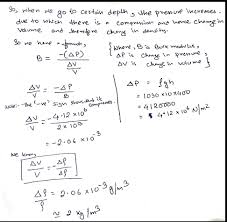 So, when we go to certain depth, the pressure increases.
due to which there is a compression and hence change in
volume and therefore change in density.
So we have formula,
B = -(ΔP) / (ΔV/V)
{where, B is Bulk modulus,
ΔP is change in pressure,
ΔV is change in volume}
ΔV/V = -ΔP/B
ΔP = ρgh
= 1030 × 10 × 400
= 4120000
= 4.12 × 10⁶ N/m²
ΔV/V = -4.12 × 10⁶ / 2 × 10⁹
= -2.06 × 10⁻³
we know,
ΔV/V = -Δρ/ρ
Δρ/ρ = 2.06 × 10⁻³ g/m³
≈ 2 kg/m³